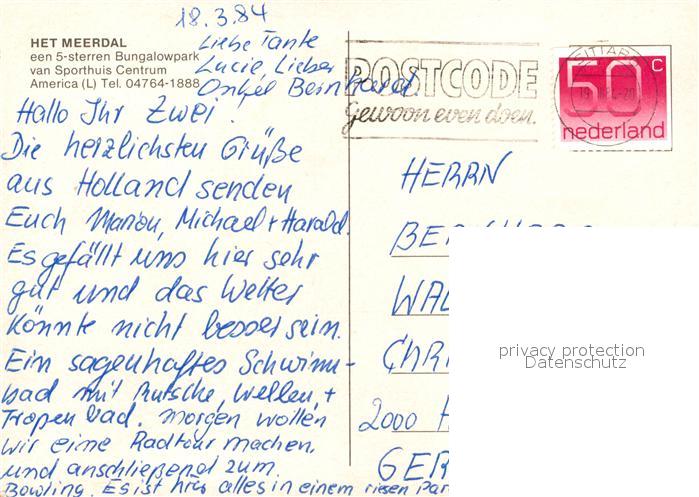 18.3.84
HET MEERDAL
een 5-sterren Bungalowpark
van Sporthuis Centrum
America (L) Tel. 04764-1888
Liebe Tante
Lucie, Lieber
Onkel Bernhard
Hallo Ihr Zwei.
Die herzlichsten Grüße
aus Holland senden
Euch Marion, Michael + Harald.
Es gefällt uns hier sehr
gut und das Wetter
könnte nicht besser sein.
Ein sagenhaftes Schwimm-
bad mit Rutsche, Wellen, +
Tropenbad. Morgen wollen
wir eine Radtour machen,
und anschließend zum
Bowling. Es ist hier alles in einem riesen Par
POSTCODE
Gewoon even doen.
SITTARD
50 c
nederland
HERRN
BE
WAL
CHR
2000 H
GER
privacy protection
Datenschutz